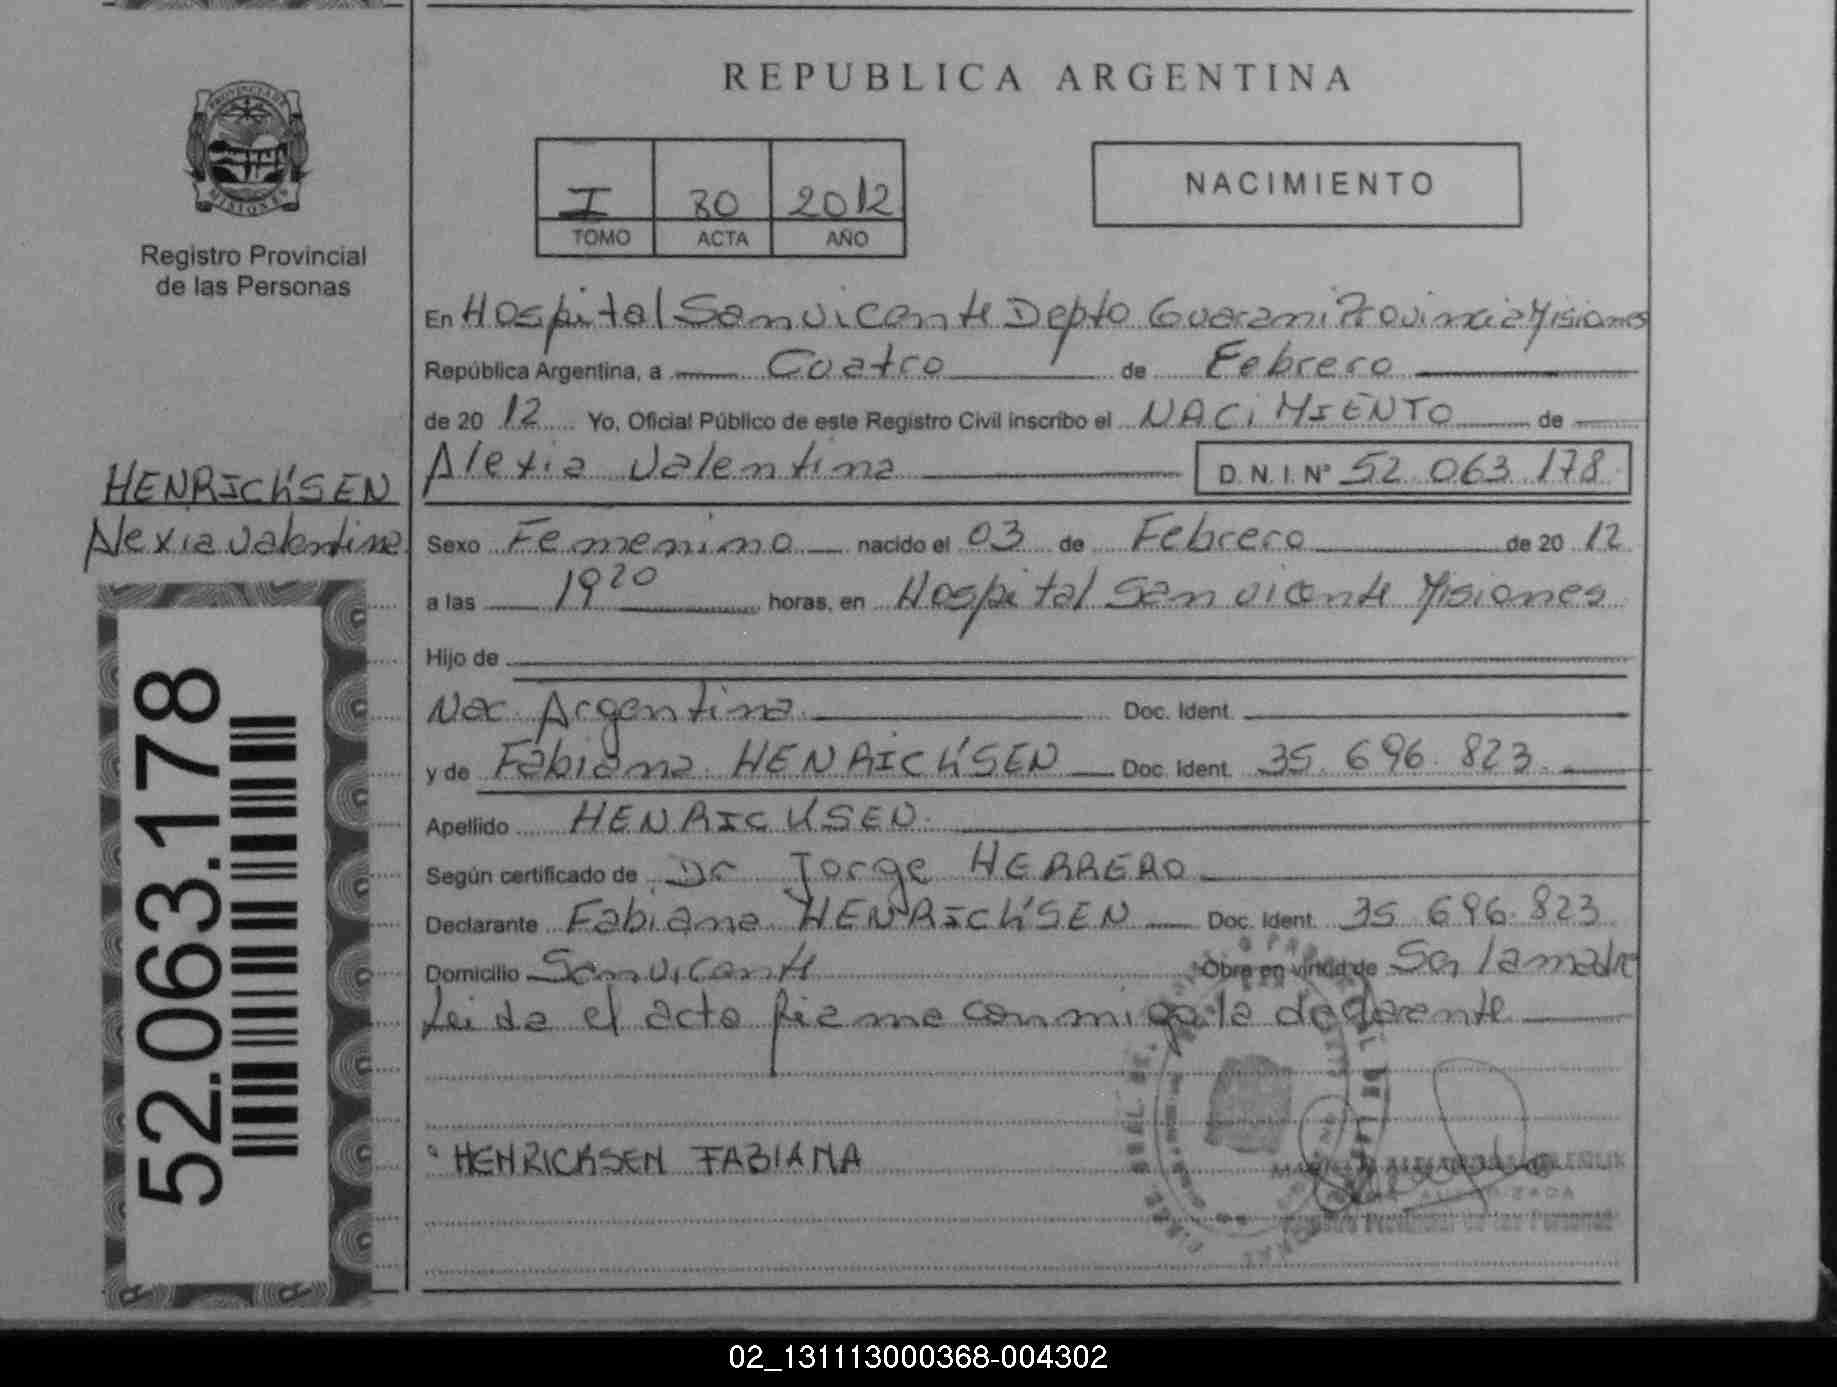 REPUBLICA ARGENTINA
PROVINCIA DE
MISIONES
Registro Provincial
de las Personas
I 80 2012
TOMO ACTA AÑO
NACIMIENTO
En Hospital San Vicente Depto Guarani Provincia Misiones
República Argentina, a Cuatro de Febrero
de 20 12 Yo, Oficial Público de este Registro Civil inscribo el NACIMIENTO de
Alexia Valentina D.N.I. Nº 52.063.178
HENRICKSEN
Alexia Valentina
Sexo Femenino nacido el 03 de Febrero de 20 12
a las 19 20 horas, en Hospital San Vicente Misiones
Hijo de
Nac. Argentina Doc. Ident.
y de Fabiana HENRICKSEN Doc. Ident. 35.696.823
Apellido HENRICKSEN
Según certificado de Dr Jorge HERRERO
Declarante Fabiana HENRICKSEN Doc. Ident. 35.696.823
Domicilio San Vicente Obra en virtud de Ser la madre
Leida el acta firma conmigo la declarante
52.063.178
HENRICKSEN FABIANA
Registro Provincial de las Personas
02_131113000368-004302